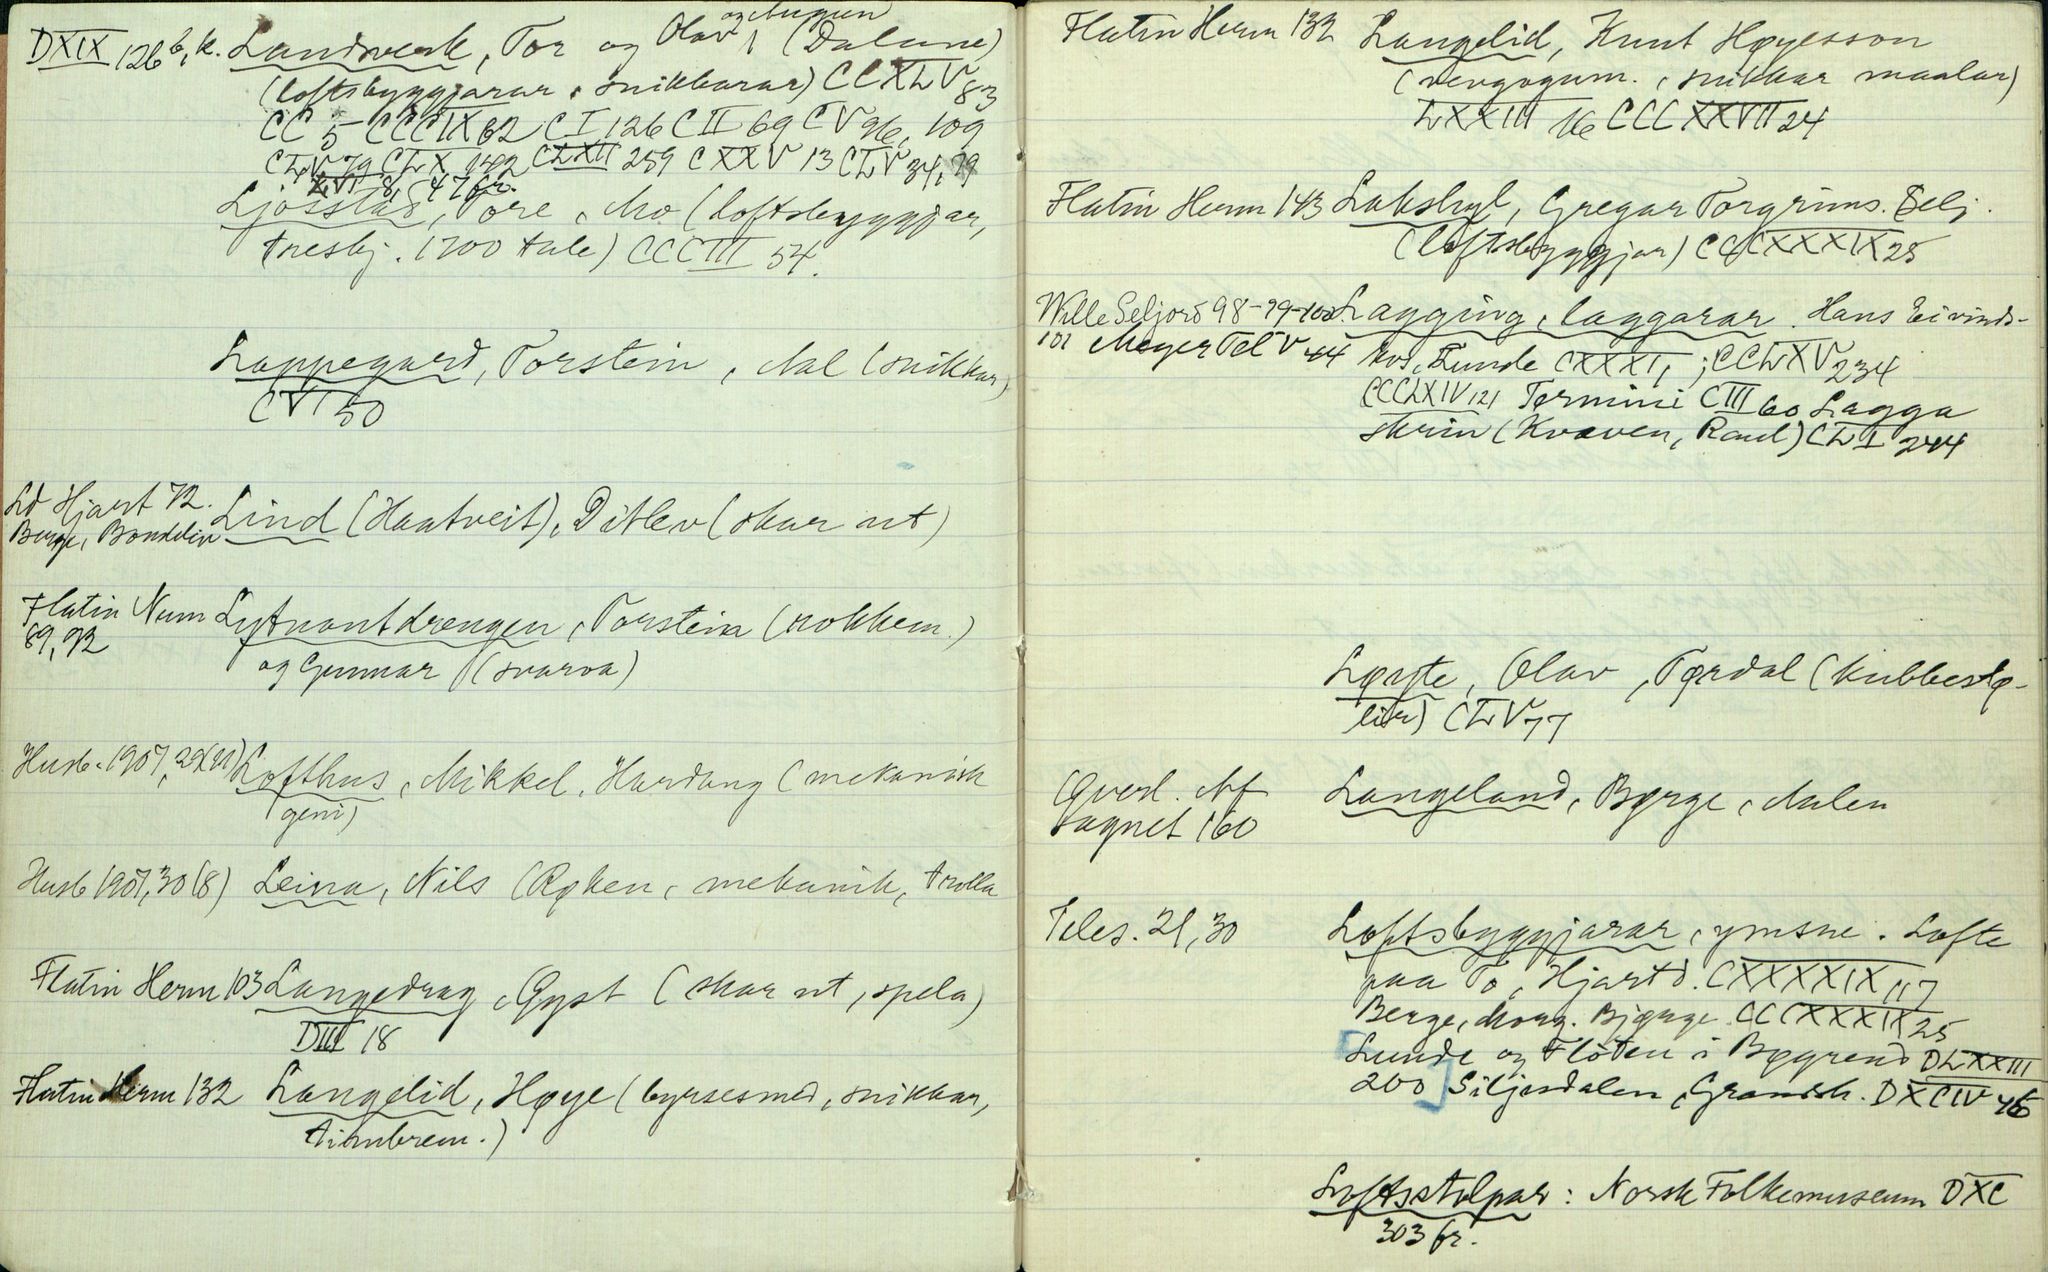 DXIX 126 b, k. Landsverk, Tor og Olav (Dalane)
(loftsbyggjarar, snikkarar) CCXLV 83
CC 5 CCCIX 62 CI 126 CII 69 CV 96, 109
CLV 79 CLX 142 CLXII 259 CXXV 13 CLV 34, 79
XVI 8, 47 fr.
Ljosstad, Tore, Mo (loftsbyggjar,
treskj. 1700 tale) CCCIII 54.
Lappegard, Torstein, Aal (snikkar)
CVI 50
Ld Hjart 72.
Berge, Bondeliv Lind (Haatveit), Ditlev (skar ut)
Flatin Num Lytnantdrengen, Torstein (rokkem.)
89, 92 og Gunnar (svarva)
Husb. 1907, 29(11) Lofthus, Mikkel, Hardang (mekanisk
geni)
Husb 1907, 30 (8) Leina, Nils (Røken, mekanik, trolla
Flatin Herm 103 Langedrag, Øyst (skar ut, spela)
DIII 18
Flatin Herm 132 Langelid, Høye (byrsesmed, snikkar,
timbrem.)
Flatin Herm 132 Langelid, Knut Høyesson
(vevgogum., snikkar maalar)
LXXIII 16 CCCXXVII 24
Flatin Herm 143 Lakshyl, Gregar Torgrims. Selj.
(loftsbyggjar) CCCXXXIX 25
Wille Seljord 98-99-100 Lagging, laggarar. Hans Eivinds-
101 Meyer Tel V 44 hos, Lunde CXXXI 1; CCLXV 234
CCCLXIV 121 Termini CIII 60 Lagga
skrin (Kvæven, Raul) CLI 244
Løyte, Olav, Tørdal (kubbestø-
lar) CLV 77
Øverl. Af
sagnet 160 Langeland, Børge, Aalen
Teles. 21, 30 Loftsbyggjarar, ymsne. Lofte
paa To, Hjartd. CXXXXIX 117
Berge, Morg. Bjørge CCCXXXIX 25
Lunde og Flòten i Bøgrend DLXXIII
200] Siljesdalen, Gransh. DXCIV 46
Loftsstolpar: Norsk Folkemuseum DXC
303 fr.